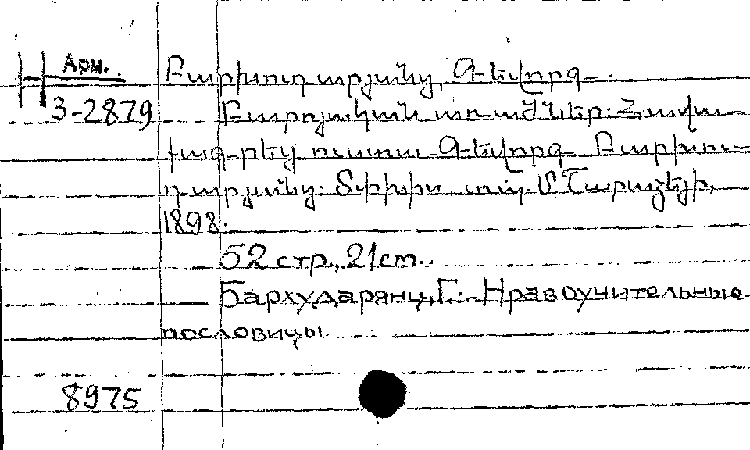 Н Арм.
3-2879
Բարխուդարյանց, Գևորգ.
Բարոյական առածներ: Հավա-
քագրեց ուստա Գևորգ Բարխու-
դարյանց: Տփխիս, տպ. Մ. Շարաձեի,
1898.
52 стр., 21 cm.
Бархударянц, Г. Нравоучительные
пословицы
8975